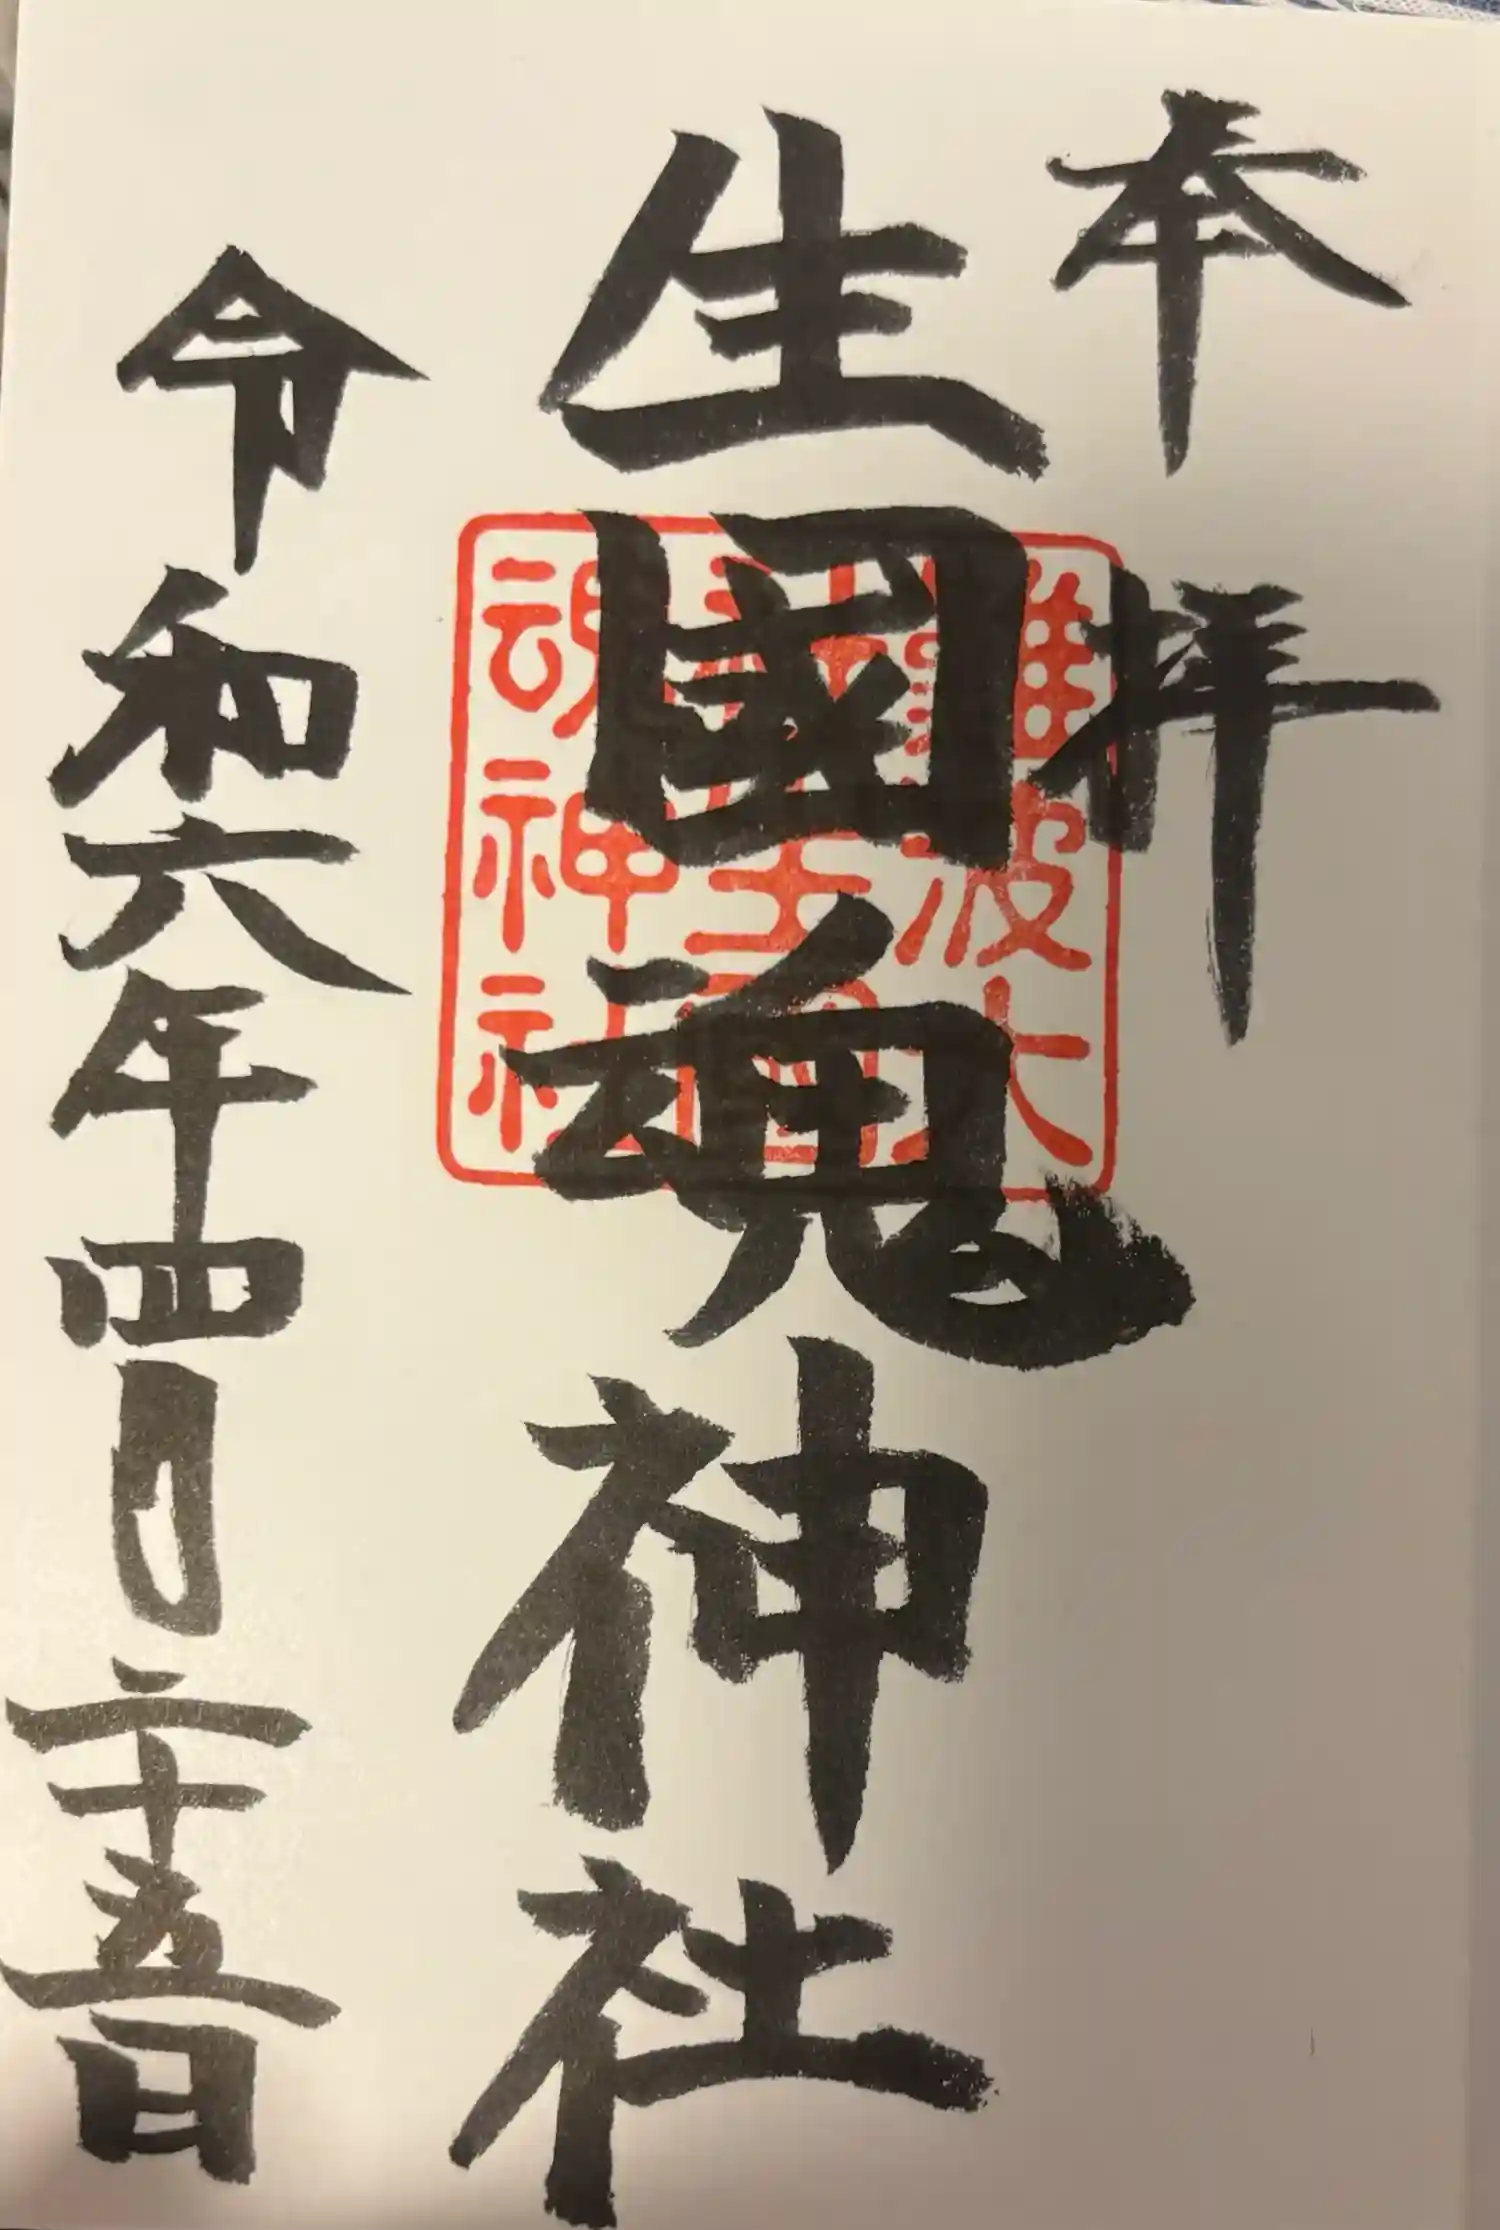 奉拝
生國魂神社
難波大
社生國
魂神社
令和六年四月二十五日